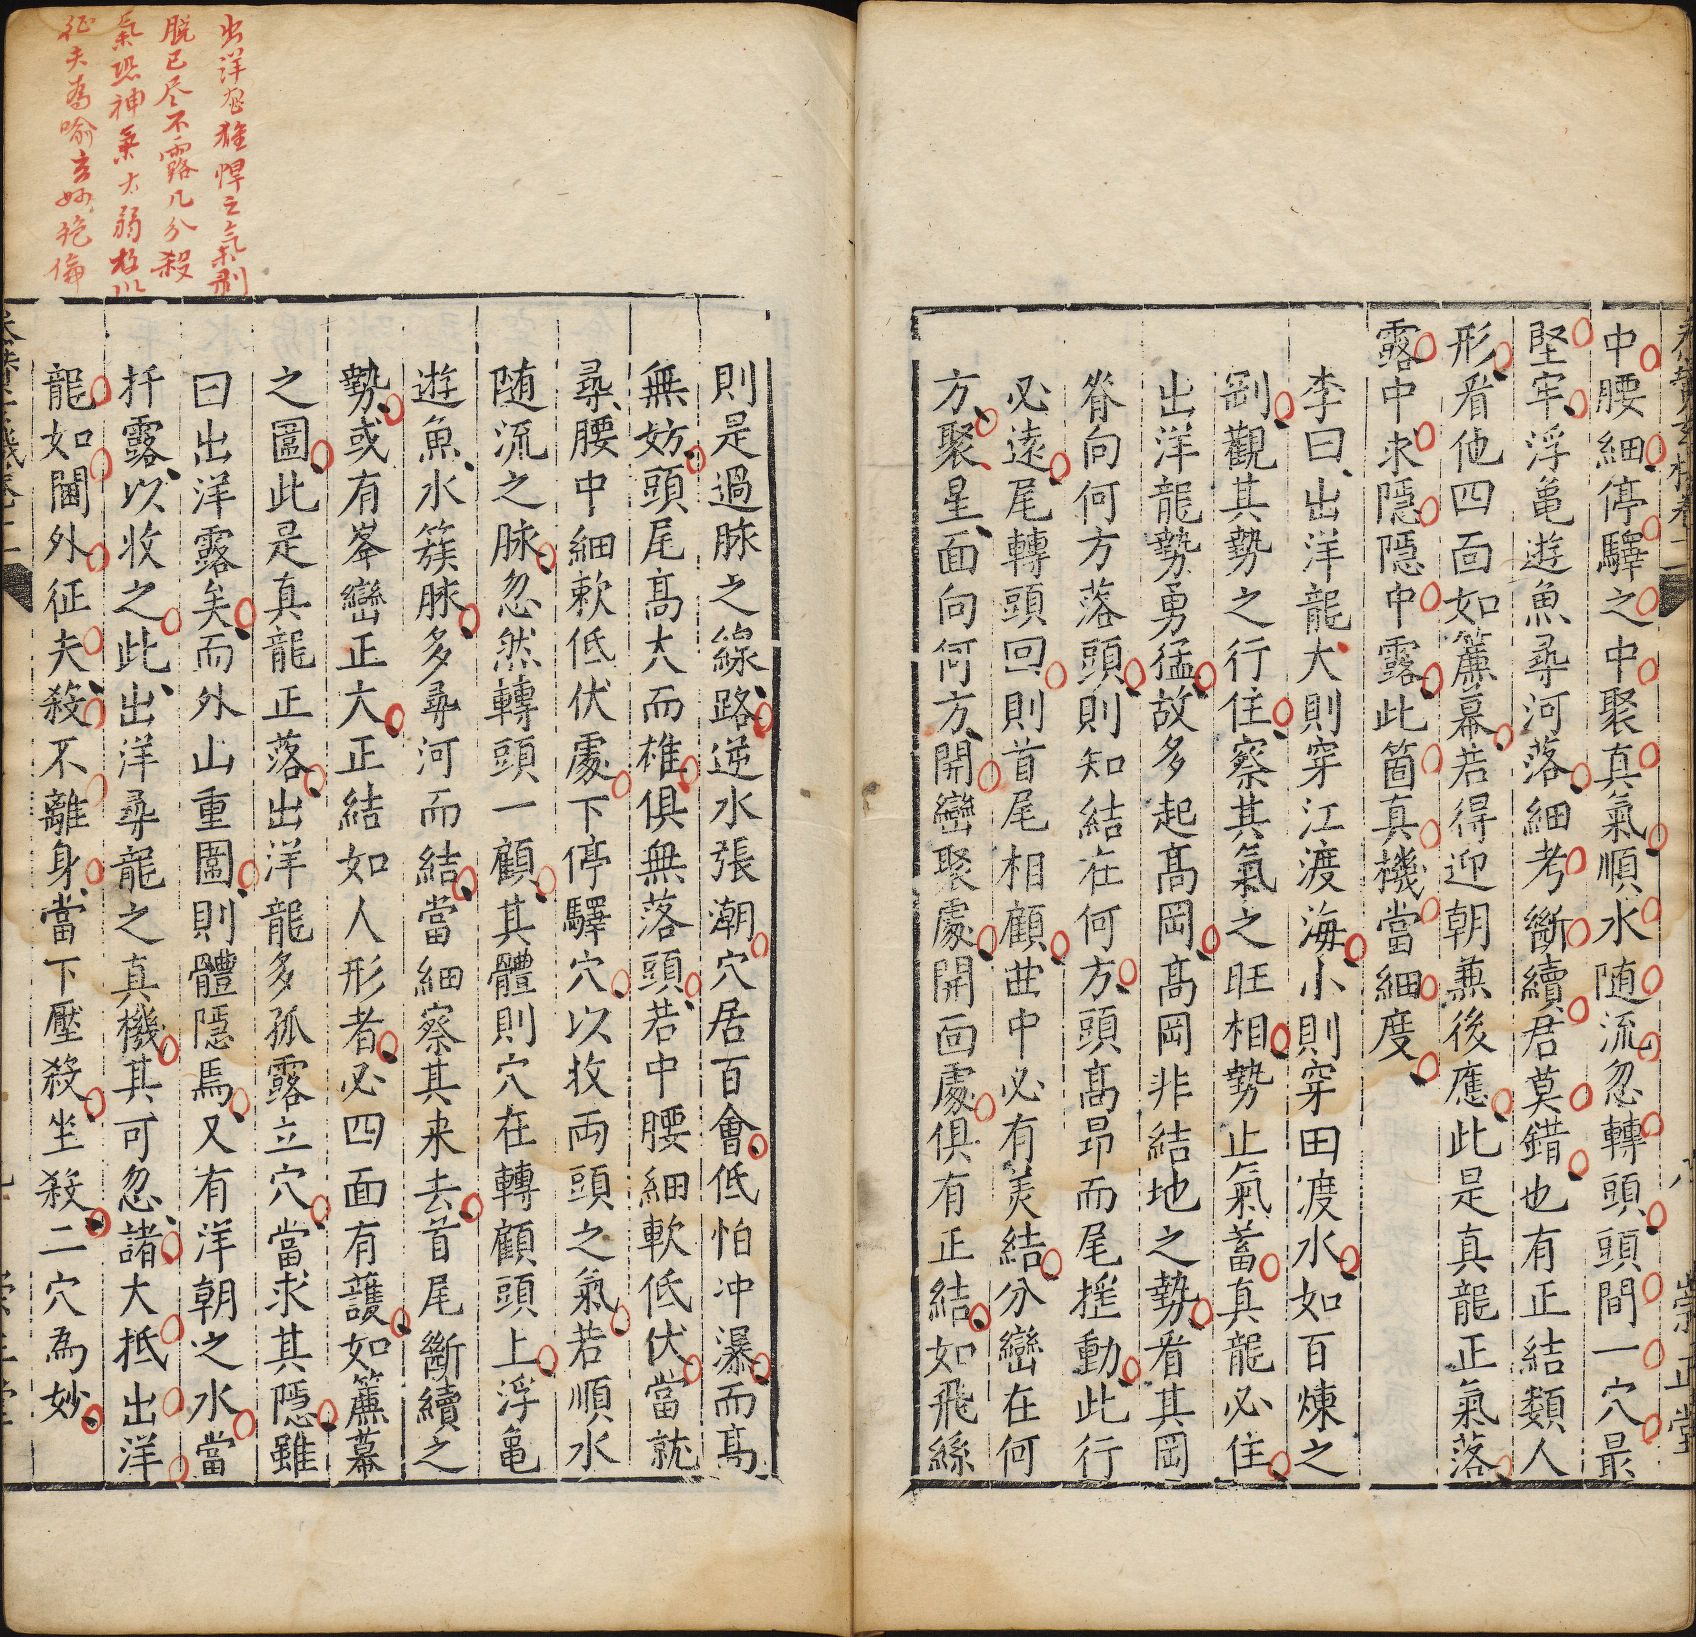 中腰細停驛之中聚真氣順水随流忽轉頭頭間一穴最
堅牢浮亀遊魚尋河落細考斷續君莫錯也有正結類人
形看他四面如簾幕若得迎朝兼後應此是真龍正氣落
露中求隱隱中露此箇真機當細度
李曰出洋龍大則穿江渡海小則穿田渡水如百煉之
剛觀其勢之行住察其氣之旺相勢止氣蓄真龍必住
出洋龍勢勇猛故多起髙岡髙岡非結地之勢看其岡
脊向何方落頭則知結在何方頭髙昂而尾揺動此行
必遠尾轉頭回則首尾相顧曲中必有美結分巒在何
方聚星面向何方開巒聚處開面處俱有正結如飛絲
則是過脉之線路逆水張潮穴居百會低怕冲瀑而髙
無妨頭尾髙大而椎俱無落頭若中腰細軟低伏當就
尋腰中細軟低伏處下停驛穴以收両頭之氣若順水
随流之脉忽然轉頭一顧其體則穴在轉顧頭上浮亀
遊魚水簇脉多尋河而結當細察其来去首尾斷續之
勢或有峯巒正大正結如人形者必四面有護如簾幕
之圖此是真龍正落出洋龍多孤露立穴當求其隱雖
曰出洋露矣而外山重圖則體隱焉又有洋朝之水當
扦露以收之此出洋尋龍之真機其可忽諸大抵出洋
龍如閫外征夫殺不離身當下壓殺坐殺二穴為妙
崇正堂
出洋龍雄悍之氣剥
脱已尽不露几分殺
氣恐神氣太弱故以
征夫為喻玄妙絶倫